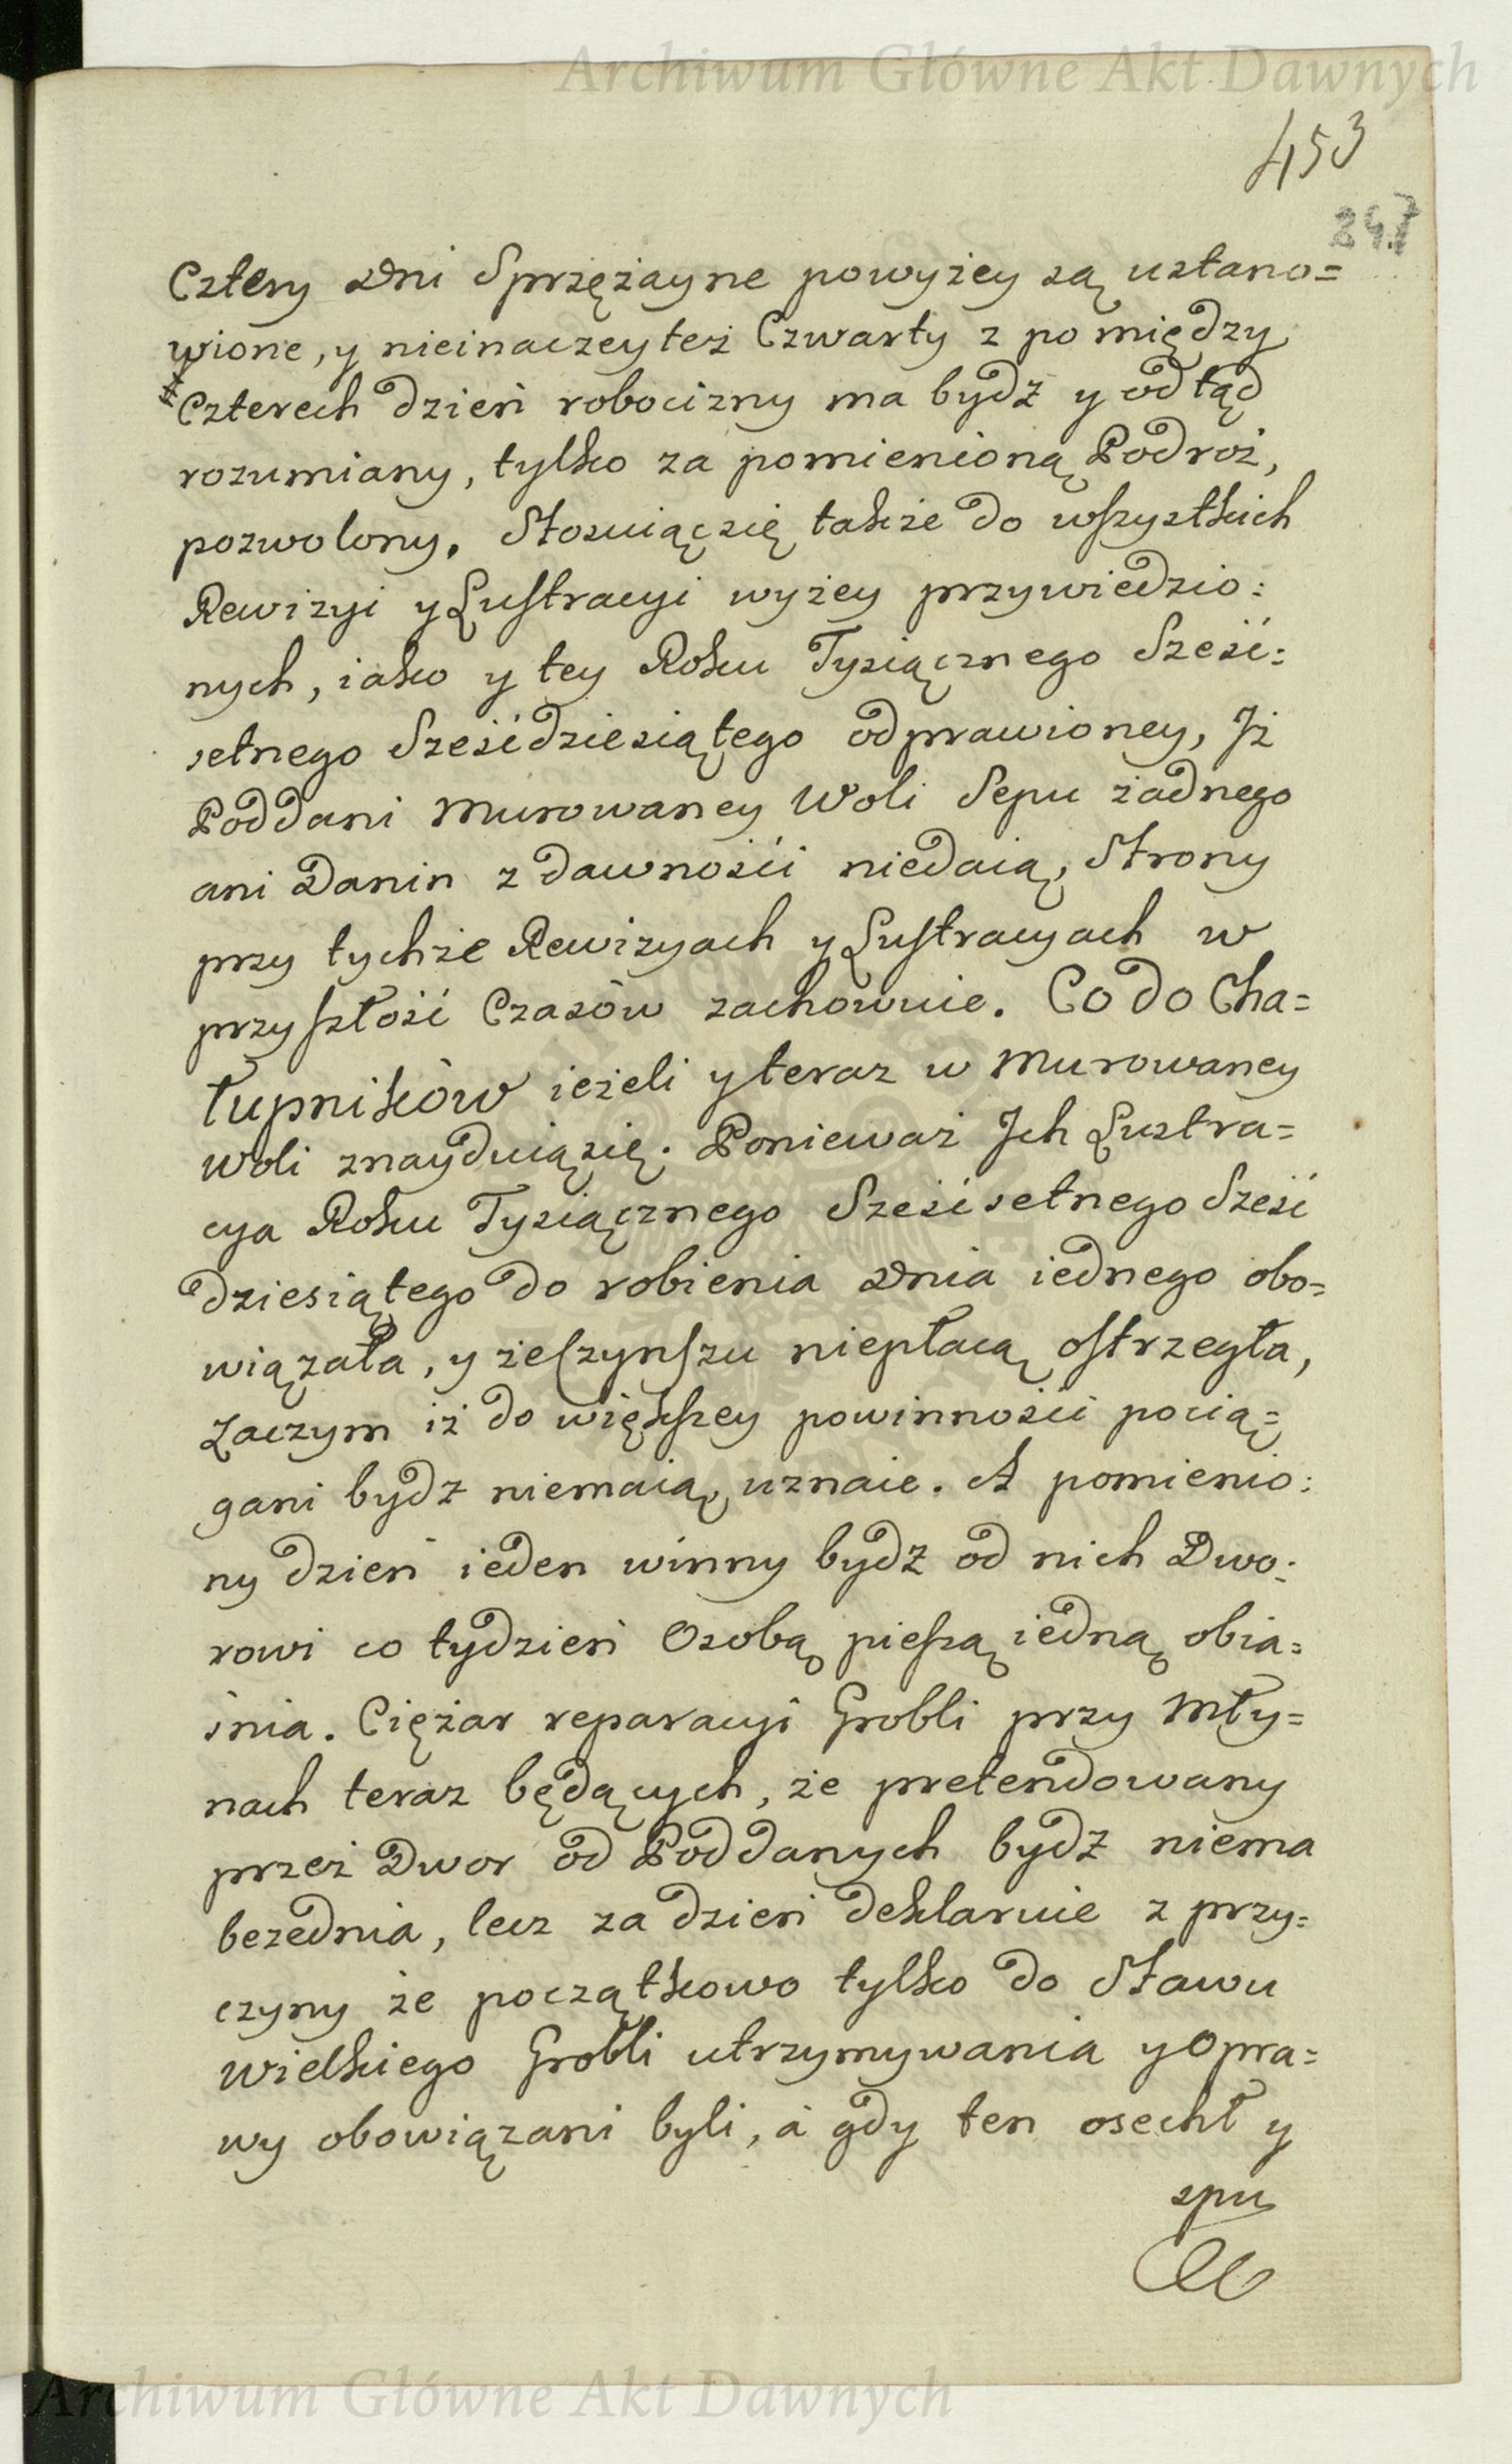 Archiwum Główne Akt Dawnych
453
247
Cztery Dni Sprzężayne powyżey są ustano=
wione, y nieinaczey też Czwarty z pomiędzy
Czterech dzień robocizny ma bydź y odtąd
rozumiany, tylko za pomienioną Podroż,
pozwolony. Stosuiąc się także do wszystkich
Rewizyi y Lustracyi wyżey przywiedzio:
nych, iako y tey Roku Tysiącznego Sześć:
setnego Sześćdziesiątego odprawioney, Iż
Poddani Murowaney Woli Sepu żadnego
ani Danin z dawności niedaią, Strony
przy tychże Rewizyach y Lustracyach w
przyszłość Czasów zachowuie. Co do Cha=
łupników ieżeli y teraz w Murowaney
Woli znayduią się. Ponieważ Ich Lustra=
cya Roku Tysiącznego Sześćsetnego Sześć
dziesiątego do robienia Dnia iednego obo=
wiązała, y że szynszu niepłacą ostrzegła,
Zaczym iż do większey powinności pocią=
gani bydź niemaią, uznaie. A pomienio:
ny dzień ieden winny bydź od nich Dwo:
rowi co tydzień Osobą pieszą iedną obia=
śnia. Ciężar reparacyi Grobli przy Mły=
nach teraz będących, że pretendowany
przez Dwor od Poddanych bydź niema
bezednia, lecz za dzień deklaruie z przy=
czyny że początkowo tylko do Stawu
wielkiego Grobli utrzymywania y Opra=
wy obowiązani byli, a gdy ten osechł y
spu
Archiwum Główne Akt Dawnych